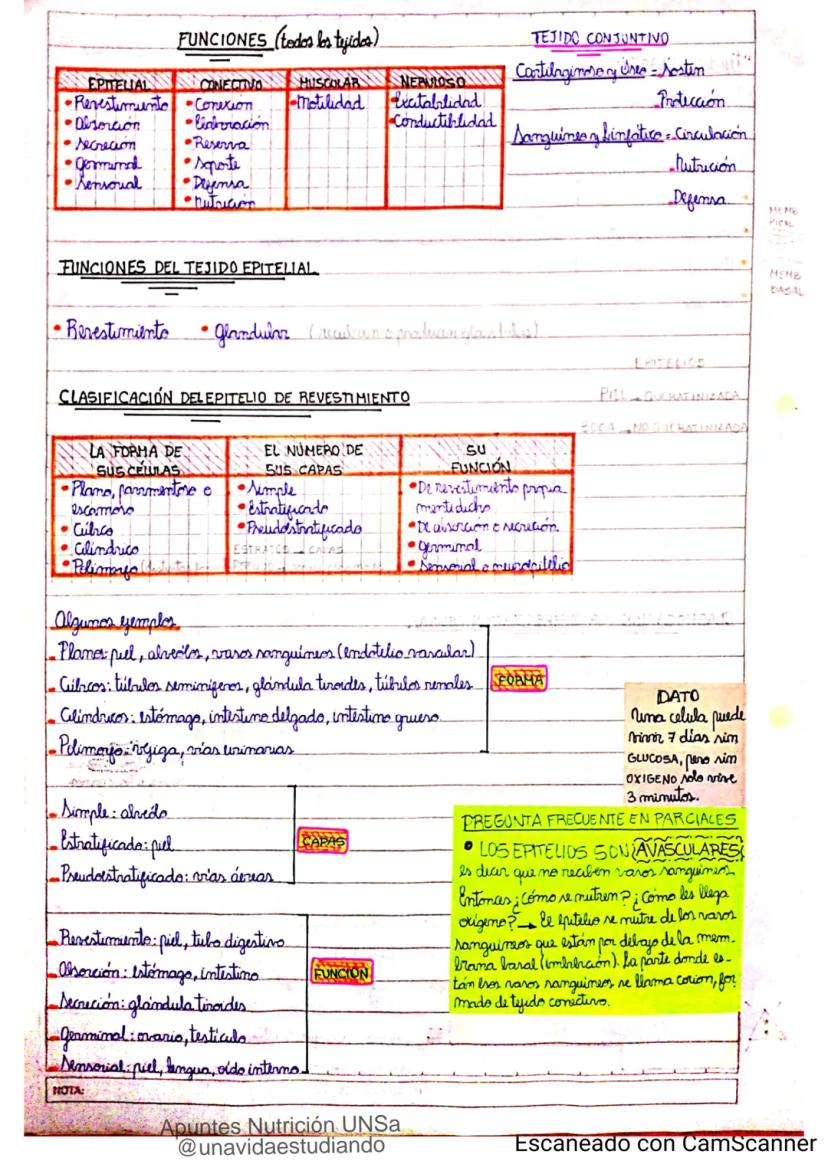 FUNCIONES (todos los tejidos)
EPITELIAL
• Revestimiento
• Absorción
• Secreción
• Germinal
• Sensorial
CONECTIVO
• Conexion
• Elaboración
• Reserva
• Soporte
• Defensa
• Nutrición
MUSCULAR
• Motilidad
NERVIOSO
• Excitabilidad
• Conductibilidad
TEJIDO CONJUNTIVO
Cartilaginoso y Óseo = Sostén
Protección
Sanguíneo y Linfático = Circulación
Nutrición
Defensa
FUNCIONES DEL TEJIDO EPITELIAL
• Revestimiento • Glandular
CLASIFICACIÓN DEL EPITELIO DE REVESTIMIENTO
LA FORMA DE
SUS CÉLULAS
• Plano, pavimentoso o
escamoso
• Cúbico
• Cilíndrico
• Polimorfo
EL NÚMERO DE
SUS CAPAS
• Simple
• Estratificado
• Pseudostratificado
ESTRATOS → CAPAS
SU
FUNCIÓN
• De revestimiento propia
mente dicho
• De absorción o secreción
• Germinal
• Sensorial o neuroepitelio
Algunos ejemplos
Planos: piel, alveólos, vasos sanguíneos (endotelio vascular)
Cúbicos: túbulos seminíferos, glándula tiroides, túbulos renales
Cilíndricos: estómago, intestino delgado, intestino grueso
Polimorfo: vejiga, vías urinarias
FORMA
Simple: alveólo
Estratificado: piel
Pseudoestratificado: vías áereas
CAPAS
Revestimiento: piel, tubo digestivo
Absorción: estómago, intestino
Secreción: glándula tiroides
Germinal: ovario, testículo
Sensorial: piel, lengua, oído interno
FUNCIÓN
DATO
Una celula puede
vivir 7 días sin
GLUCOSA, pero sin
OXIGENO solo vive
3 minutos.
PREGUNTA FRECUENTE EN PARCIALES
• LOS EPITELIOS SON AVASCULARES,
es decir que no reciben vasos sanguíneos.
Entonces ¿Cómo se nutren? ¿Cómo les llega
oxígeno? → El epitelio se nutre de los vasos
sanguíneos que están por debajo de la mem-
brana basal (imbibición). La parte donde es-
tán esos vasos sanguíneos se llama corion, for
mado de tejido conectivo.
NOTA:
Apuntes Nutrición UNSa
@unavidaestudiando
Escaneado con CamScanner